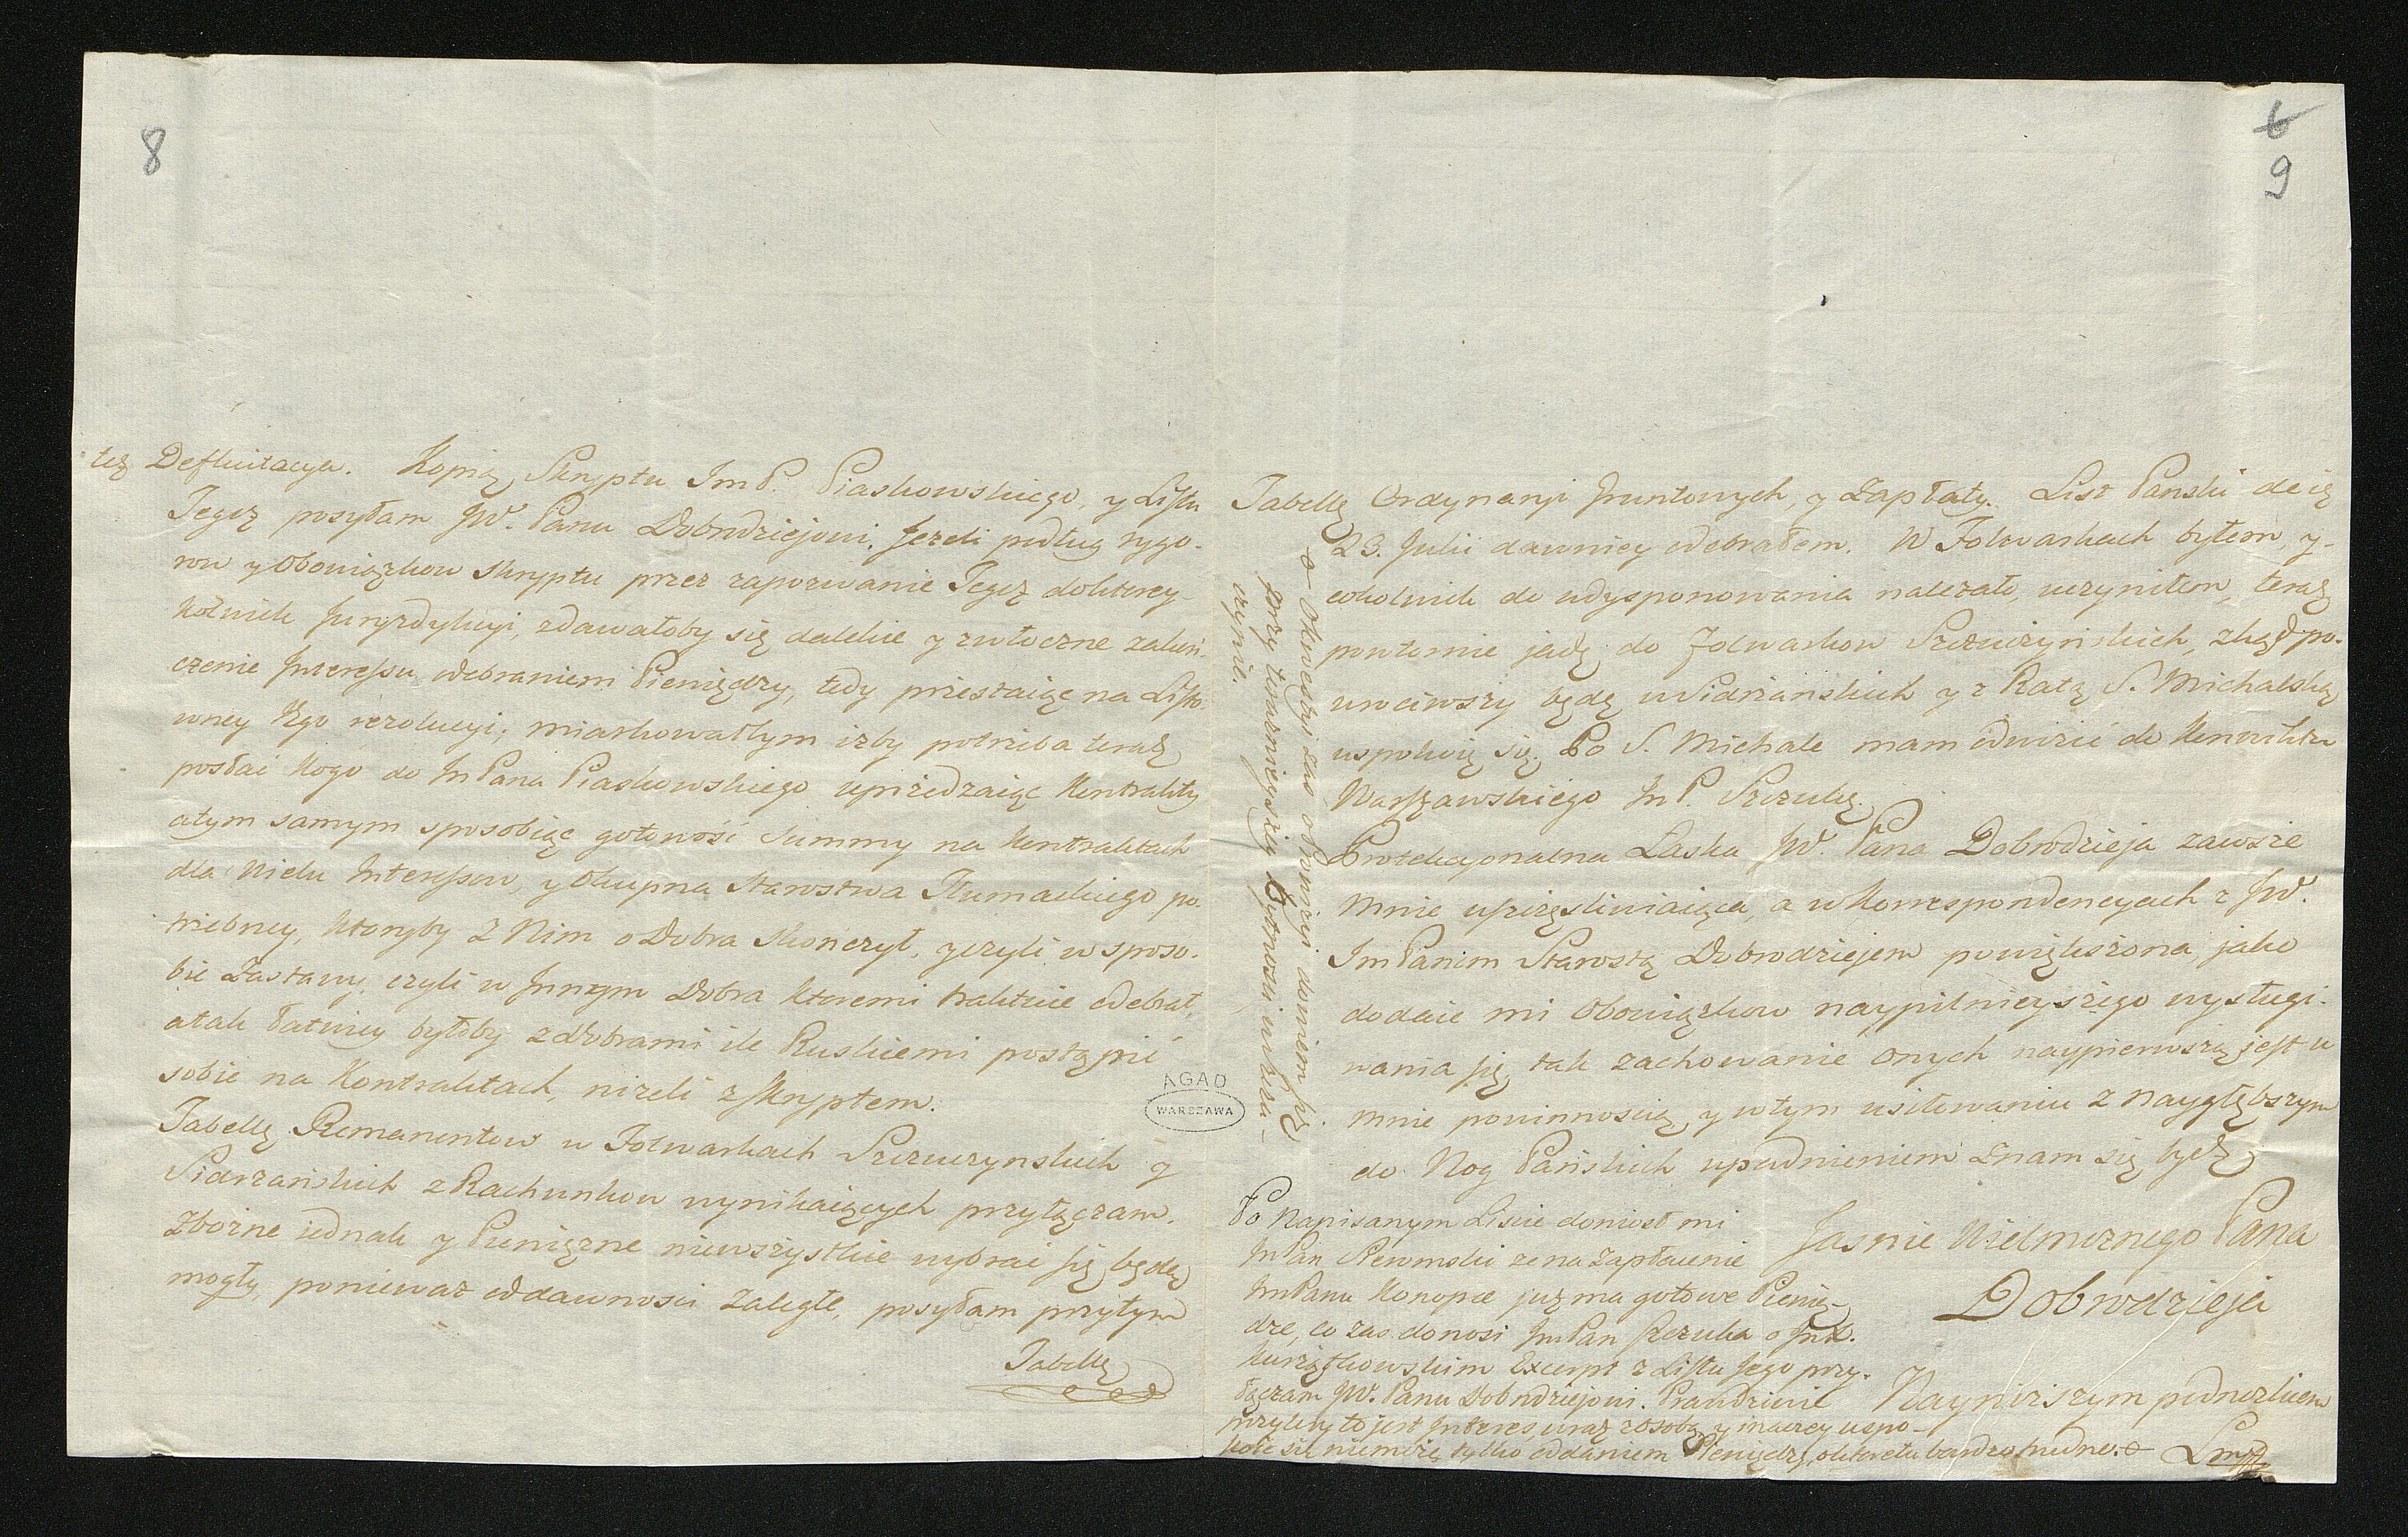 8
teg Defluitacya. Kopią Skryptu Im P. Piaskowskiego, y Listu
Tegoż posyłam JW. Panu Dobrodziejowi. Jezeli podług rygo-
row y Obowiązkow Skryptu przez zapozwanie Tegoż doktorey-
kolwiek Juryzdykcyi, zdawałoby się dalekie y zwłoczne zakoń-
czenie Interessu odebraniem Pieniędzy, tedy przestaiąc na Listo-
wney Jego rezolucyi, miarkowałbym izby potrzeba teraz
posłać Kogo do Im Pana Piaskowskiego uprzedzaiąc Kontrakty
atym samym sposobiąc gotowość Summy na Kontraktach
dla Wielu Interessow, y Okupna Starostwa Tłumackiego po-
trzebney, Ktoryby z Nim o Dobra skonczył, jezyli w sposo-
bie Zastawy, czyli w Innym Dobra Ktoremi traktuie odebrał,
atak łatwiey byłoby z dobrami ile Ruskiemi postąpić
sobie na Kontraktach, nizeli z Skryptem.
Tabellę Remanentow w Folwarkach Szczuczynskich y
Sidrzańskich z Rachunkow wynikaiących przyłączam.
Zbożne iednak y Pieniężne niewszystkie wybrać się będą
mogły, poniewaz oddawnosci zaległe, posyłam przytym
Tabellę
AGAD
WARSZAWA
6
9
Tabellę Ordynaryi Gruntowych, y Zapłaty. List Panski de ie
23. Julii dawniey odebrałem. W Folwarkach byłem, y-
cokolwiek do udysponowania nalezało, uczyniłem, teraz
powtornie jadę do Folwarkow Szczuczynskich, zkąd po-
wrociwszy będę w Sidrzańskich y z Ratą S. Michalską
uspokoię się. Po S. Michale mam odwieźć do Konwiktu
Warszawskiego Im P. Szczukę.
Protekcyonalna Łaska JW. Pana Dobrodzieja zawsze
mnie uszczęsliwiaiąca, a w Korrespondencyach z JW.
Im Panem Starostą Dobrodziejem powiększona, jako
dodaie mi Obowiązkow naypilnieyszego wysługi-
wania się, tak zachowanie onych naypierwszą jest u
mnie powinnoscią, y wtym usiłowaniu z naygłębszym
do Nog Pańskich upadnieniem znam się bydź
Jasnie Wielmoznego Pana
Dobrodzieja
Nayniższym podnozkiem
Po Napisanym Liscie doniosł mi
Im Pan ze na Zapłacenie
Im Panu Konopce już ma gotowe Pienię-
dze, co zas donosi Im Pan Szczuka o Im P.
Kurzątkowskim Excerpt z Listu Jego przy-
łączam JW. Panu Dobrodziejowi. Prawdziwie
przykry to jest Interes wraz z Osobą, y inaczey uspo-
koic się niemoże, tylko oddaniem Pieniędzy, oktore tu bardzo trudno.
o Okwestyi zas o
przy
czynie.